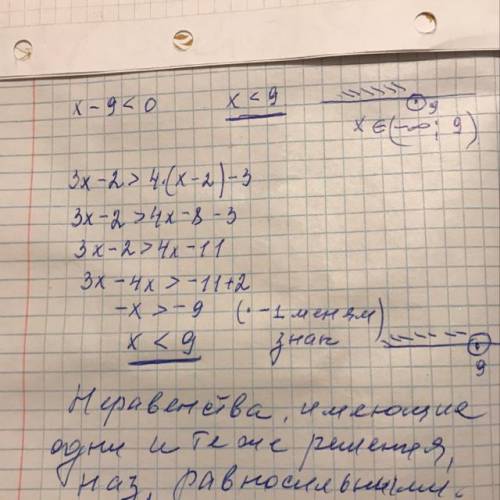 x-9<0 x<9 9
x∈(-∞; 9)
3x-2>4·(x-2)-3
3x-2>4x-8-3
3x-2>4x-11
3x-4x>-11+2
-x>-9 (·-1 меняем
x<9 знак) 9
Неравенства, имеющие
одни и те же решения,
наз. равносильными.